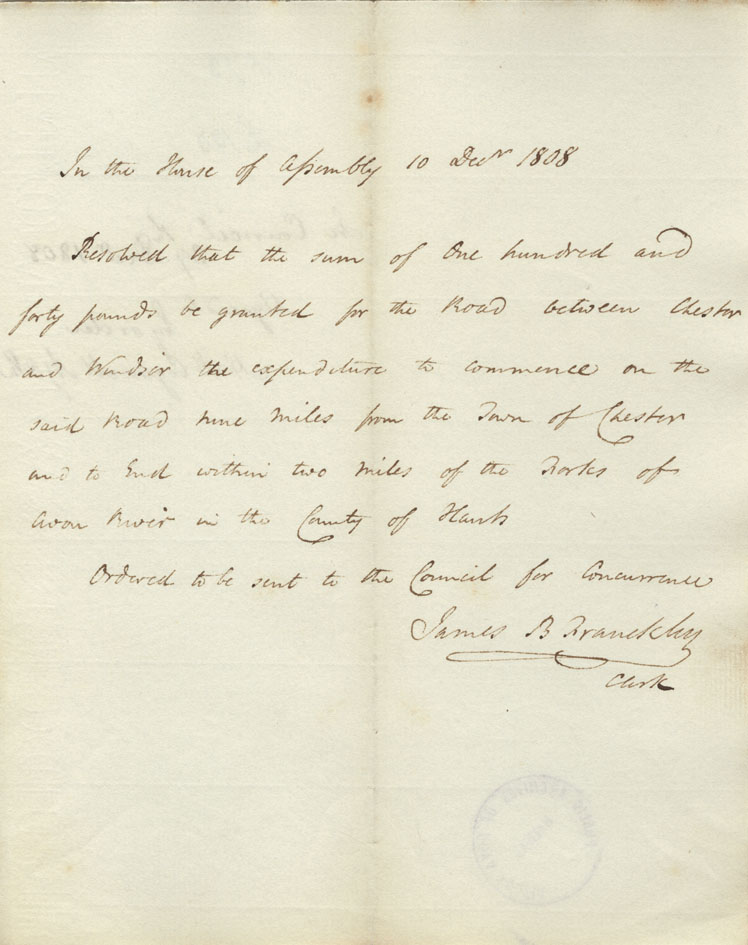 In the House of Assembly 10 Decr 1808
Resolved that the sum of One hundred and
forty pounds be granted for the Road between Chester
and Windsor the expenditure to commence on the
said Road nine Miles from the Town of Chester
and to End within two Miles of the Forks of
Avon River in the County of Hants
Ordered to be sent to the Council for Concurrence
James B Franckly
Clerk